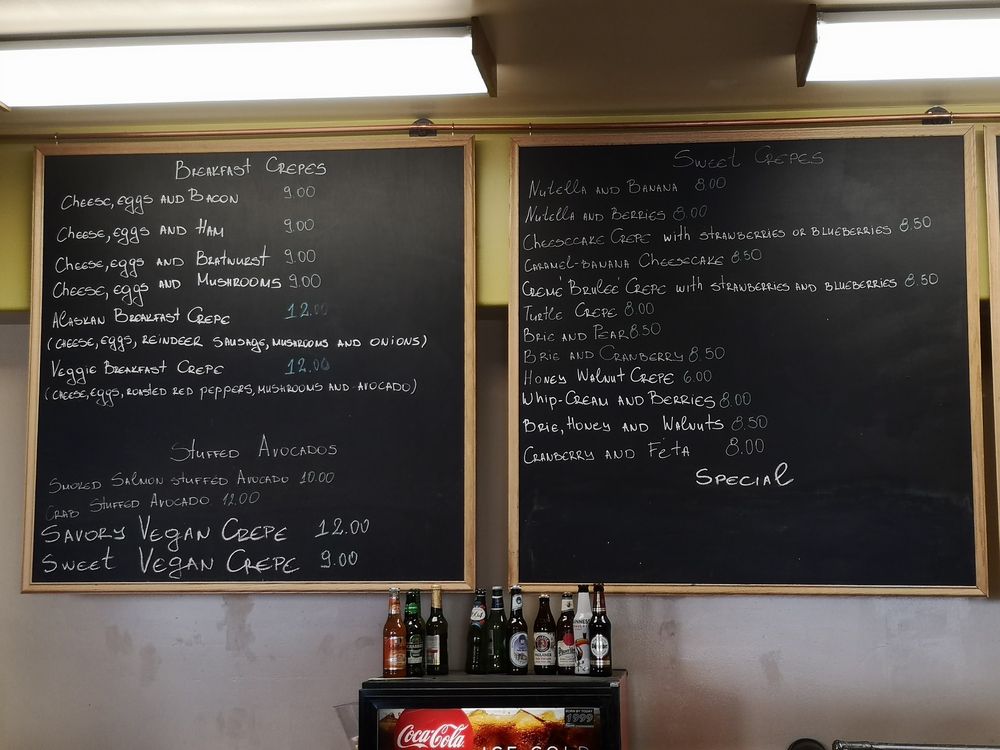 BREAKFAST CREPES
CHEESE, eggs AND BACON 9.00
CHEESE, eggs AND HAM 9.00
CHEESE, eggs AND BRATWURST 9.00
CHEESE, eggs AND MUSHROOMS 9.00
ALASKAN BREAKFAST CREPE 12.00
(CHEESE, EGGS, REINDEER SAUSAGE, MUSHROOMS AND ONIONS)
VEGGIE BREAKFAST CREPE 12.00
(CHEESE, EGGS, ROASTED RED PEPPERS, MUSHROOMS AND AVOCADO)
STUFFED AVOCADOS
SMOKED SALMON STUFFED AVOCADO 10.00
CRAB STUFFED AVOCADO 12.00
SAVORY VEGAN CREPE 12.00
SWEET VEGAN CREPE 9.00
SWEET CREPES
NUTELLA AND BANANA 8.00
NUTELLA AND BERRIES 8.00
CHEESECAKE CREPE with STRAWBERRIES OR BLUEBERRIES 8.50
CARAMEL-BANANA CHEESECAKE 8.50
CREME' BRULEE' CREPE with STRAWBERRIES AND BLUEBERRIES 8.50
TURTLE CREPE 8.00
BRIE AND PEAR 8.50
BRIE AND CRANBERRY 8.50
HONEY WALNUT CREPE 6.00
WHIP-CREAM AND BERRIES 8.00
BRIE, HONEY AND WALNUTS 8.50
CRANBERRY AND FETA 8.00
SPECIAL
Coca-Cola
ICE COLD
1999